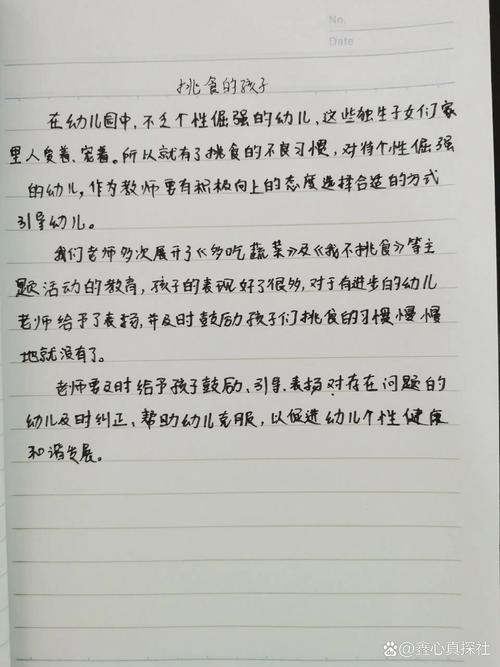 No.
Date
挑食的孩子
在幼儿园中，不乏个性倔强的幼儿，这些独生子女们家
里人哭着、宠着。所以就有了挑食的不良习惯，对待个性倔强
的幼儿，作为教师要有积极向上的态度选择合适的方式
引导幼儿。
我们老师多次展开了《多吃蔬菜》及《我不挑食》等主
题活动的教育，孩子的表现好了很多，对于有进步的幼儿
老师给予了表扬，并及时鼓励孩子们挑食的习惯慢慢
地就没有了。
老师要及时给予孩子鼓励、引导、表扬对存在问题的
幼儿及时纠正、帮助幼儿克服，以促进幼儿个性健康
和谐发展。
@鑫心真探社